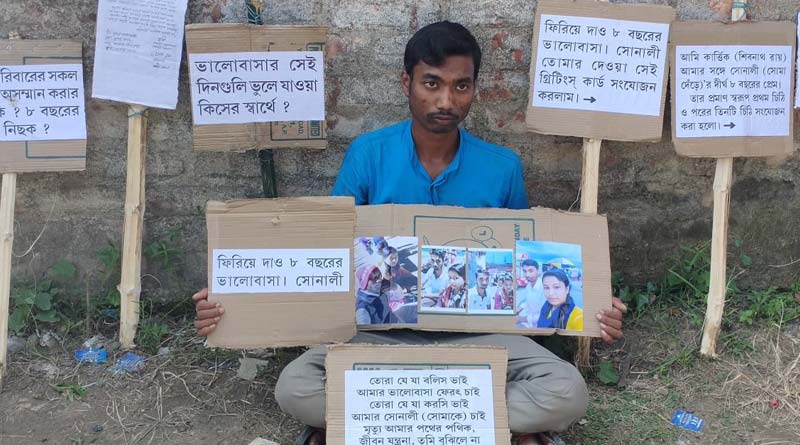 রিবারের সকল
অসম্মান করার
ক ? ৮ বছরের
নিছক ?
ভালোবাসার সেই
দিনগুলি ভুলে যাওয়া
কিসের স্বার্থে ?
ফিরিয়ে দাও ৮ বছরের
ভালোবাসা। সোনালী
তোমার দেওয়া সেই
গ্রিটিংস্ কার্ড সংযোজন
করলাম।→
আমি কার্ত্তিক (শিবনাথ রায়)
আমার সঙ্গে সোনালী (সোমা
দেঁড়ে)'র দীর্ঘ ৮ বছরের প্রেম।
তার প্রমাণ স্বরূপ প্রথম চিঠি
ও পরের তিনটি চিঠি সংযোজন
করা হলো।→
ফিরিয়ে দাও ৮ বছরের
ভালবাসা। সোনালী
তোরা যে যা বলিস ভাই
আমার ভালোবাসা ফেরৎ চাই
তোরা যে যা করসি ভাই
আমার সোনালী (সোমাকে) চাই
মৃত্যু আমার পথের পথিক,
জীবন যন্ত্রনা, তুমি বুঝিলে না